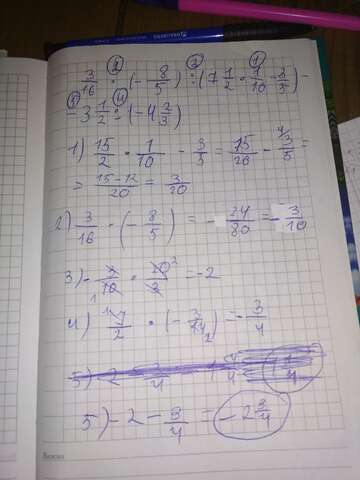 3/16 · (- 8/5) : (7 1/2 · 1/10 - 3/5) -
- 3 1/2 : (- 4 2/3)
1) 15/2 · 1/10 - 3/5 = 15/20 - 3/5 =
> 15-12/20 = 3/20
2) 3/16 · (- 8/5) = - 24/80 = - 3/10
3) - 3/10 · 20/3 = -2
4) 7/2 · (- 3/14) = - 3/4
5) -2 - 3/4 = - 2 3/4